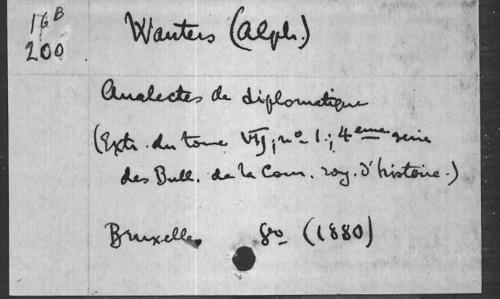 16B
200
Wauters (Alph.)
Analectes de diplomatique
(Extr. du tome VII, no 1.; 4eme série
des Bull. de la Com. roy. d'histoire.)
Bruxelles 8vo (1880)